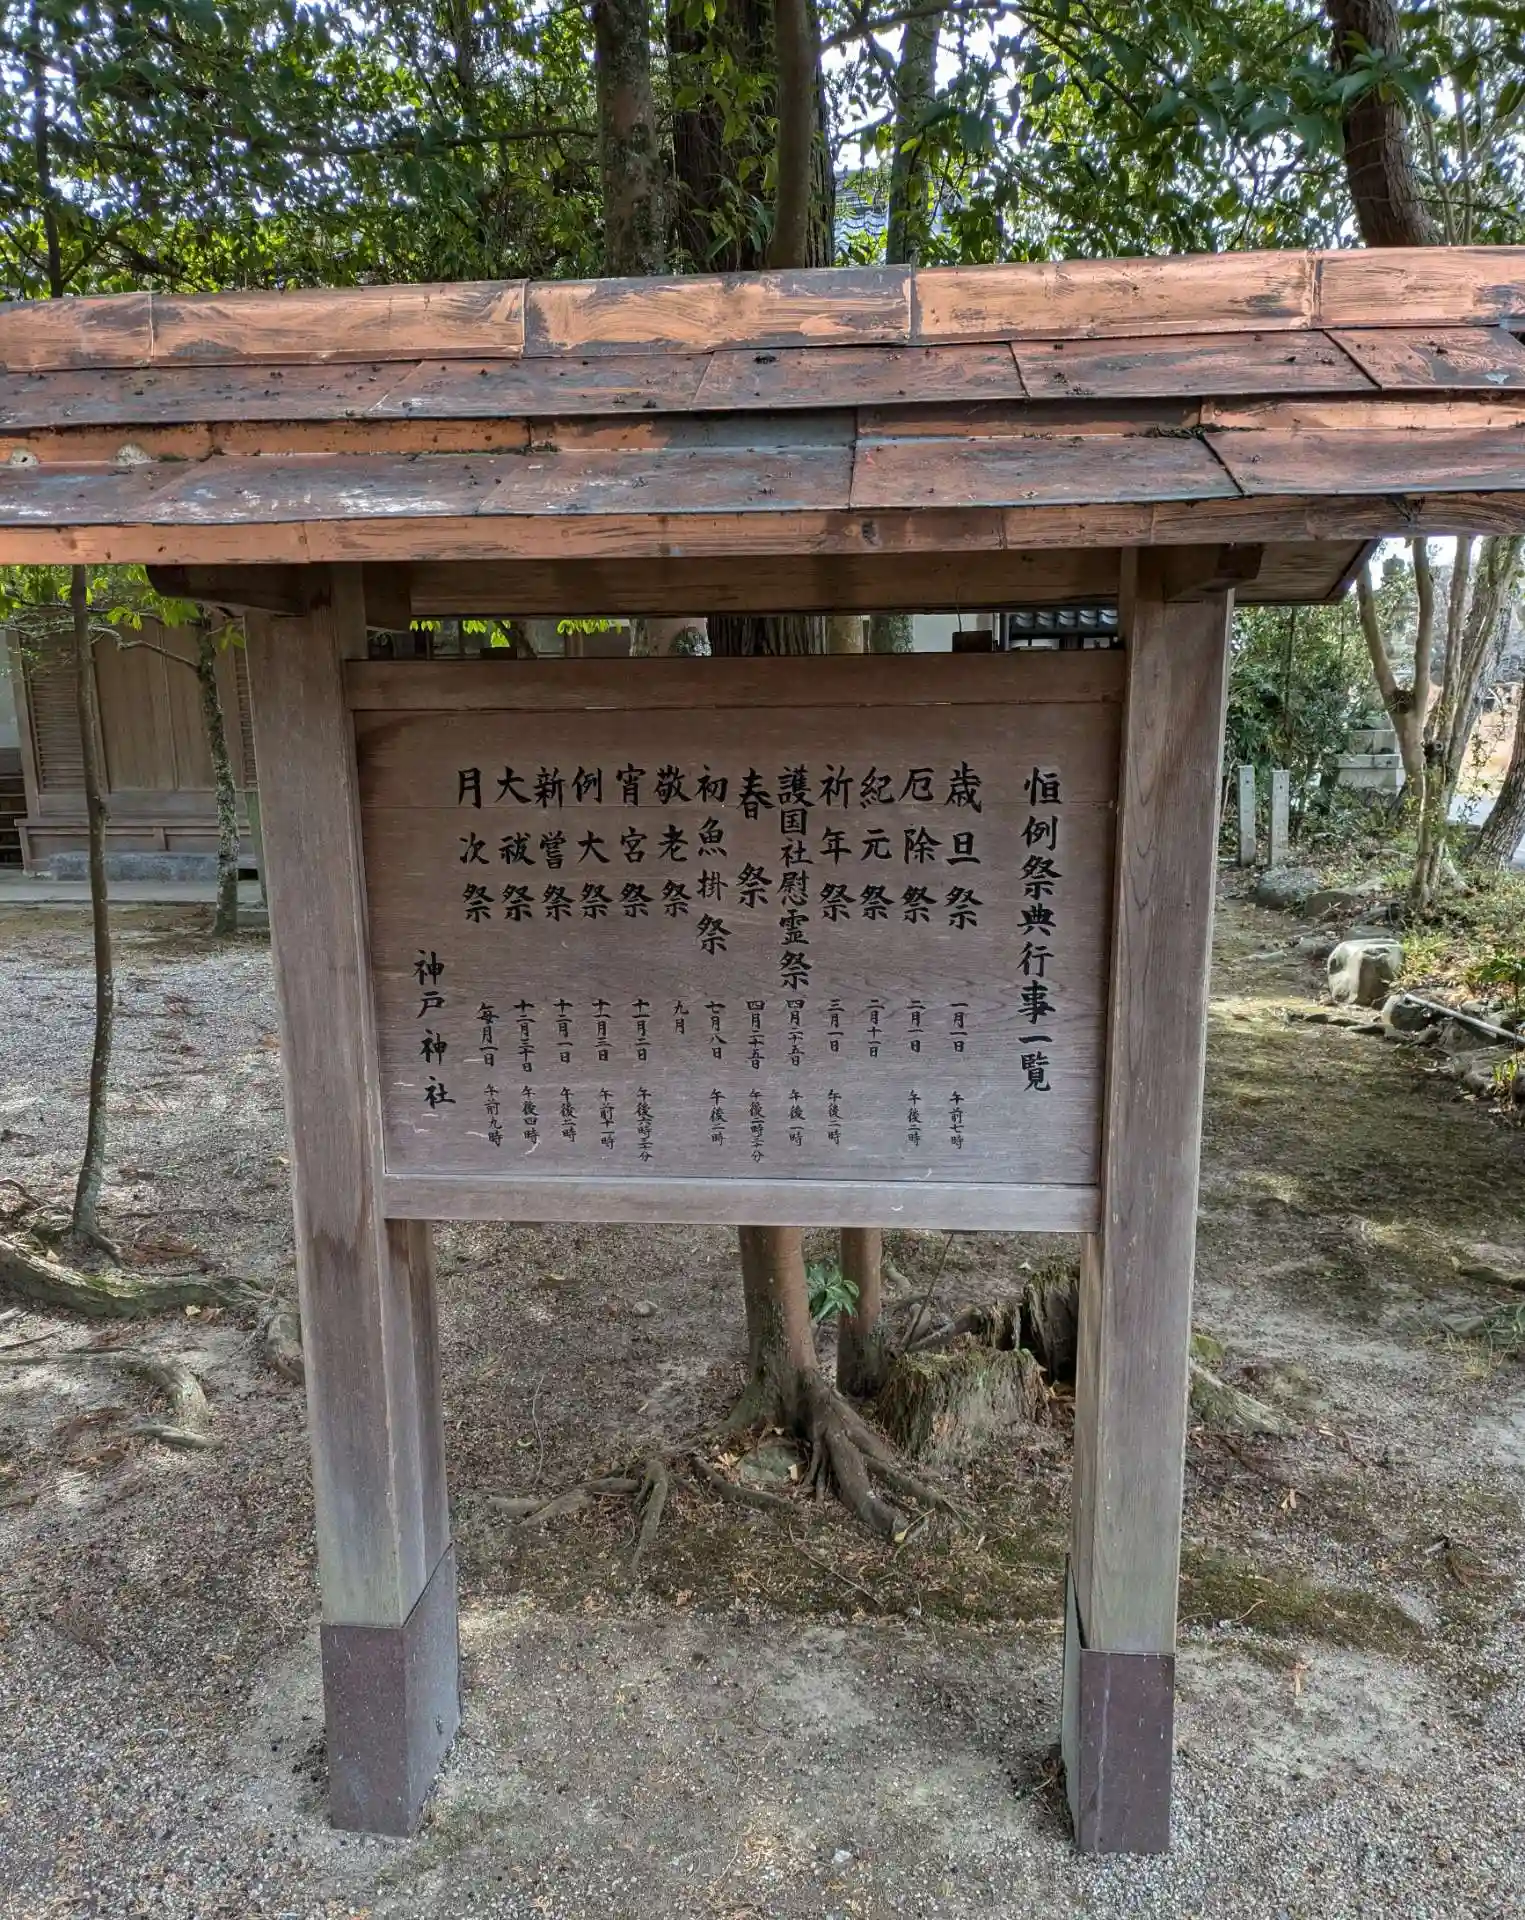 恒例祭典行事一覧
歳旦祭 一月一日 午前七時
厄除祭 二月一日 午後二時
紀元祭 二月十一日
祈年祭 三月一日 午後二時
護国社慰霊祭 四月二十五日 午後一時
春祭 四月二十五日 午後一時三十分
初魚掛祭 七月八日 午後二時
敬老祭 九月
宵宮祭 十一月二日 午後六時三十分
例大祭 十一月三日 午前十一時
新嘗祭 十二月一日 午後二時
大祓祭 十二月三十日 午後四時
月次祭 毎月一日 午前九時
神戸神社